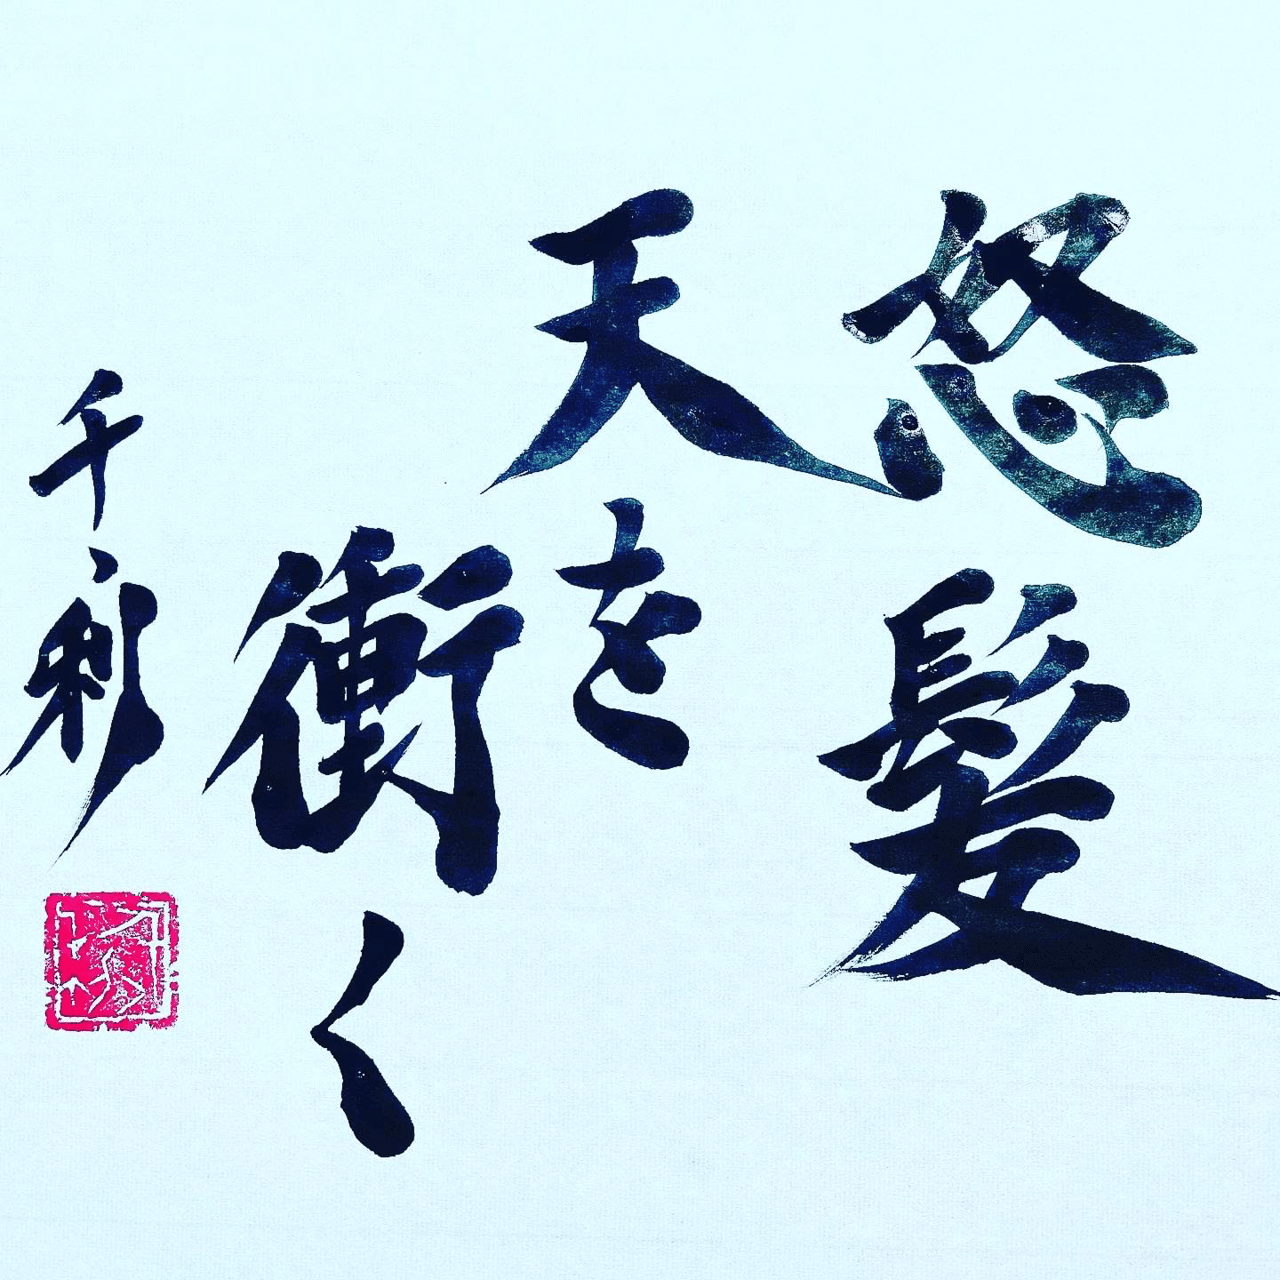 怒髪
天を
衝く
千彩